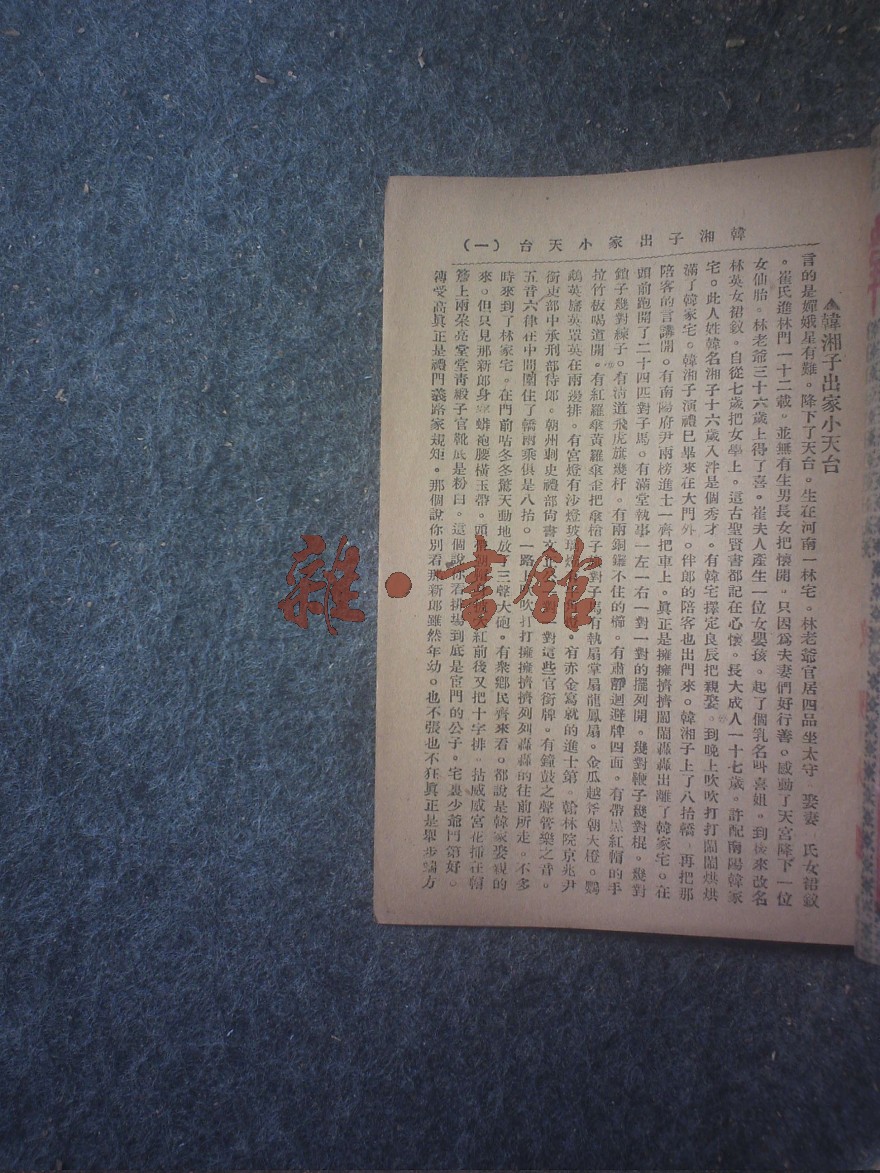 韓湘子出家小天台(一)
▲韓湘子出家小天台
言的是嬋娥星有難。降下了天台。生在河南一林宅。林老爺官居四品坐太守。娶妻 氏女裙釵
。崔氏進林門一十二載。並無有生男長女把懷開。只因爲夫妻們好行善。感動了天宮降下一位
女仙胎。林老爺三十六歲上得了喜。崔夫人產生一位女嬰孩。起了個乳名叫喜姐。到後來改名
林英女裙釵。自從七歲把女學上。這古聖賢書都記在心懷。長大成人一十七歲。許配南陽韓家
宅。此人姓韓名湘子十六歲入泮是個秀才。有韓宅擇定良辰把親娶。到晚上吹吹打打鬧鬧烘烘
滿了韓家宅。韓湘子演禮已畢來在大門外。伴郎的陪客也出門來。韓湘子上了八抬轎。再把那
陪客的言講開。有南陽府尹兩榜進士一齊把車上。眞正是擁擁擠擠鬧鬧轟轟出離了韓家宅。在
頭前跑開了二十四匹對子馬。有滿堂執事一左一右一對一對的擺列開。幾對鞭子幾對棍。幾對
鎖子幾對練子。有淸道飛虎旗幾杆。有兩銅鑼不住的儒。有肅靜迴避牌四面。有帶黑紅帽的手
拉竹板喝道開。有紅羅傘黃羅傘歪把傘 對子馬有執扇掌扇龍鳳扇。金瓜越斧朝大橙。鸚
鵡英 英罩英在兩邊排。有宮燈有沙燈玻璃 有赤金寫就的進士第。翰林院京兆尹
衔吏部中承刑部侍郎。朝州刺史禮部尙書文 對這些官銜牌。有鐘鼓之聲管樂之音。
五音六律在中間圍住了轎兩乘俱是八抬。一路上吹吹打打擁擁擠擠列列轟轟的往前所走。不多
時來到了林家宅。在門前咕冬冬驚天動地放了三聲大砲。有衆鄉民齊來看。都說是韓家娶親的
來。但只見那新郎身穿蟒袍腰橫玉帶。頭 大紅前後又把十字排。 威威宮花插在帽
簷上兩朶亮堂堂靑緞子官靴底是粉白。這個說你看排塲到底是官門的公子。宅裏少爺門第好。
傳受高眞正是禮門義路家規矩。那個說你別看那新郎雖然年幼。也不張也不狂眞正是舉步端方
雜·書館